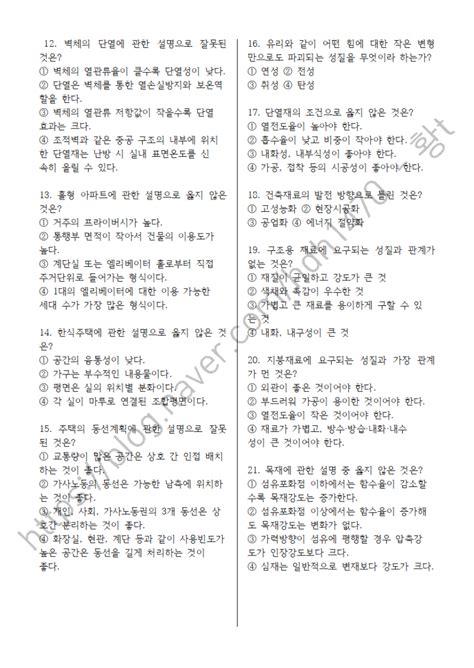 12. 벽체의 단열에 관한 설명으로 잘못된
것은?
① 벽체의 열관류율이 클수록 단열성이 낮다.
② 단열은 벽체를 통한 열손실방지와 보온역
할을 한다.
③ 벽체의 열관류 저항값이 작을수록 단열
효과는 크다.
④ 조적벽과 같은 중공 구조의 내부에 위치
한 단열재는 난방 시 실내 표면온도를 신
속히 올릴 수 있다.
13. 홀형 아파트에 관한 설명으로 옳지 않은
것은?
① 거주의 프라이버시가 높다.
② 통행부 면적이 작아서 건물의 이용도가
높다.
③ 계단실 또는 엘리베이터 홀로부터 직접
주거단위로 들어가는 형식이다.
④ 1대의 엘리베이터에 대한 이용 가능한
세대 수가 가장 많은 형식이다.
14. 한식주택에 관한 설명으로 옳지 않은 것
은?
① 공간의 융통성이 낮다.
② 가구는 부수적인 내용물이다.
③ 평면은 실의 위치별 분화이다.
④ 각 실이 마루로 연결된 조합평면이다.
15. 주택의 동선계획에 관한 설명으로 잘못
된 것은?
① 교통량이 많은 공간은 상호 간 인접 배치
하는 것이 좋다.
② 가사노동의 동선은 가능한 남측에 위치하
는 것이 좋다.
③ 개인, 사회, 가사노동권의 3개 동선은 상
호간 분리하는 것이 좋다.
④ 화장실, 현관, 계단 등과 같이 사용빈도가
높은 공간은 동선을 길게 처리하는 것이
좋다.
16. 유리와 같이 어떤 힘에 대한 작은 변형
만으로도 파괴되는 성질을 무엇이라 하는가?
① 연성 ② 전성
③ 취성 ④ 탄성
17. 단열재의 조건으로 옳지 않은 것은?
① 열전도율이 높아야 한다.
② 흡수율이 낮고 비중이 작아야 한다.
③ 내화성, 내부식성이 좋아야 한다.
④ 가공, 접착 등의 시공성이 좋아야 한다.
18. 건축재료의 발전 방향으로 틀린 것은?
① 고성능화 ② 현장시공화
③ 공업화 ④ 에너지 절약화
19. 구조용 재료에 요구되는 성질과 관계가
없는 것은?
① 재질이 균일하고 강도가 큰 것
② 색채와 촉감이 우수한 것
③ 가볍고 큰 재료를 용이하게 구할 수 있
는 것
④ 내화, 내구성이 큰 것
20. 지붕재료에 요구되는 성질과 가장 관계
가 먼 것은?
① 외관이 좋은 것이어야 한다.
② 부드러워 가공이 용이한 것이어야 한다.
③ 열전도율이 작은 것이어야 한다.
④ 재료가 가볍고, 방수·방습·내화·내수
성이 큰 것이어야 한다.
21. 목재에 관한 설명 중 옳지 않은 것은?
① 섬유포화점 이하에서는 함수율이 감소할
수록 목재강도는 증가한다.
② 섬유포화점 이상에서는 함수율이 증가해
도 목재강도는 변화가 없다.
③ 가력방향이 섬유에 평행할 경우 압축강
도가 인장강도보다 크다.
④ 심재는 일반적으로 변재보다 강도가 크다.